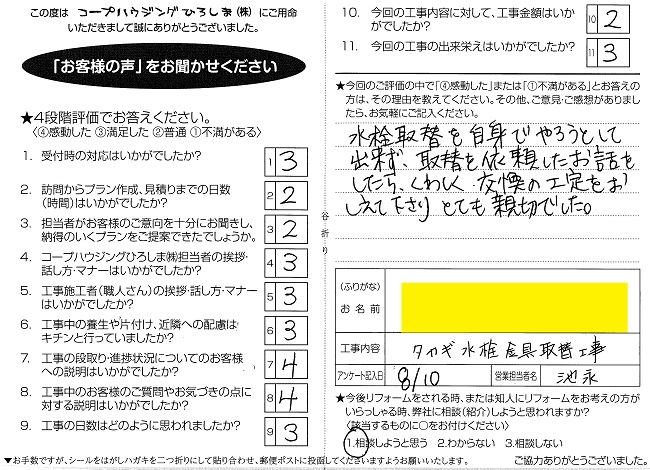 この度は コープハウジングひろしま(株) にご用命
いただきまして誠にありがとうございました。
「お客様の声」をお聞かせください
★4段階評価でお答えください。
〈④感動した ③満足した ②普通 ①不満がある〉
1. 受付時の対応はいかがでしたか? 1 3
2. 訪問からプラン作成、見積りまでの日数
(時間)はいかがでしたか? 2 2
3. 担当者がお客様のご意向を十分にお聞きし、
納得のいくプランをご提案できたでしょうか。 3 2
4. コープハウジングひろしま㈱担当者の挨拶・
話し方・マナーはいかがでしたか? 4 3
5. 工事施工者(職人さん)の挨拶・話し方・マナー
はいかがでしたか? 5 3
6. 工事中の養生や片付け、近隣への配慮は
キチンと行っていましたか? 6 3
7. 工事の段取り・進捗状況についてのお客様
への説明はいかがでしたか? 7 4
8. 工事中のお客様のご質問やお気づきの点に
対する説明はいかがでしたか? 8 4
9. 工事の日数はどのように思われましたか? 9 3
谷折り
10. 今回の工事内容に対して、工事金額はいか
がでしたか? 10 2
11. 今回の工事の出来栄えはいかがでしたか? 11 3
★今回のご評価の中で「④感動した」または「①不満がある」とお答え
の方は、その理由を教えてください。その他、ご意見・ご感想がありまし
たら、お気軽にご記入ください。
水栓取替を自身でやろうとして
出来ず、取替を依頼したお話を
したら、くわしく 交換の工定をお
しえて下さり とても親切でした。
(ふりがな)
お名前
工事内容 タカギ水栓金具取替工事
アンケート記入日 8/10 営業担当者名 池永
★今後リフォームをされる時、または知人にリフォームをお考えの方が
いらっしゃる時、弊社に相談(紹介)しようと思われますか?
〈該当するものに○をお付けください〉
1.相談しようと思う 2.わからない 3.相談しない
▼お手数ですが、シールをはがしハガキを二つ折りにして貼り合わせ、郵便ポストに投函してくださいますようお願いいたします。
ご協力ありがとうございました。